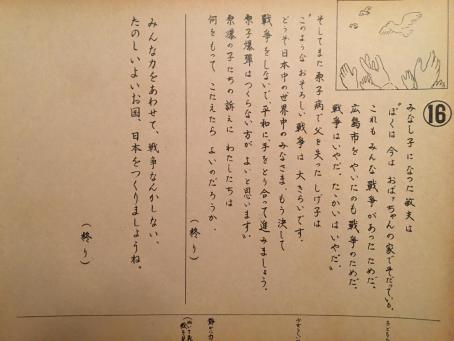 ⑯
みなし子になった敏夫は
"ぼくは今はおばァちゃんの家でそだっている。
これもみんな戦争があったためだ。
広島市をやいたのも戦争のためだ。
戦争はいやだ。たゝかいはいやだ。"
そしてまた原子病で父を失ったしげ子は
"このようなおそろしい戦争は大きらいです。
どうぞ日本中の世界中のみなさま、もう決して
戦争をしないで、平和に、手をとり合って進みましょう。
原子爆弾はつくらない方がよいと思います"
原爆の子たちの訴えにわたしたちは
何をもってこたえたらよいのだろうか。
(終り)
みんな力をあわせて、戦争なんかしない、
たのしいよいお国、日本をつくりましょうね。
(終り)